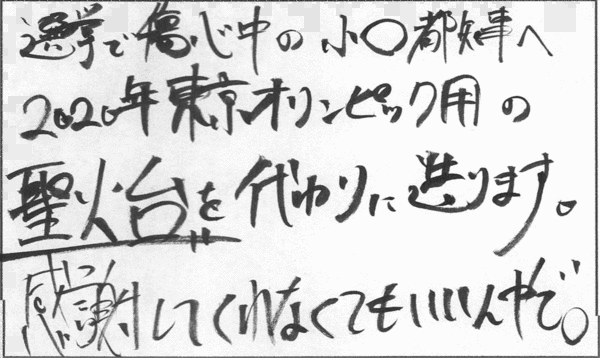 選挙で傷心中の小〇都知事へ
2020年東京オリンピック用の
聖火台を代わりに送ります。
感謝してくれなくてもいいんやで。